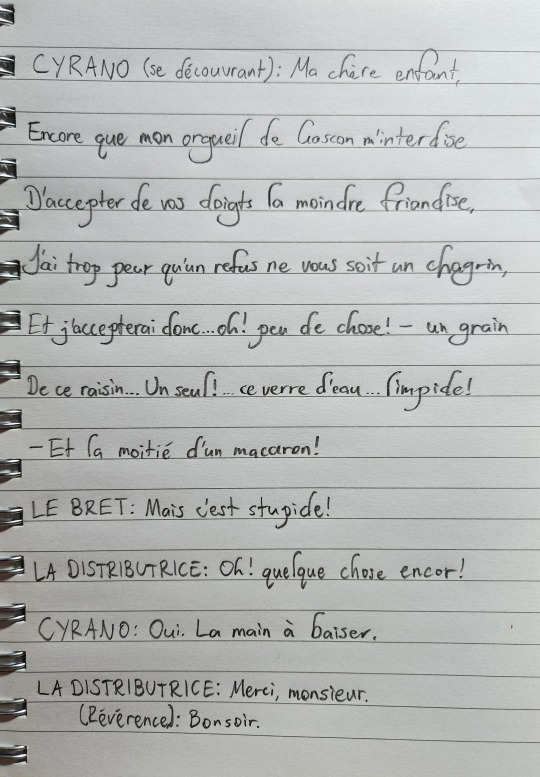 CYRANO (se découvrant): Ma chère enfant,
Encore que mon orgueil de Gascon m'interdise
D'accepter de vos doigts la moindre friandise,
J'ai trop peur qu'un refus ne vous soit un chagrin,
Et j'accepterai donc...oh! peu de chose! - un grain
De ce raisin... Un seul!... ce verre d'eau... limpide!
- Et la moitié d'un macaron!
LE BRET: Mais c'est stupide!
LA DISTRIBUTRICE: Oh! quelque chose encor!
CYRANO: Oui. La main à baiser.
LA DISTRIBUTRICE: Merci, monsieur.
(Révérence): Bonsoir.